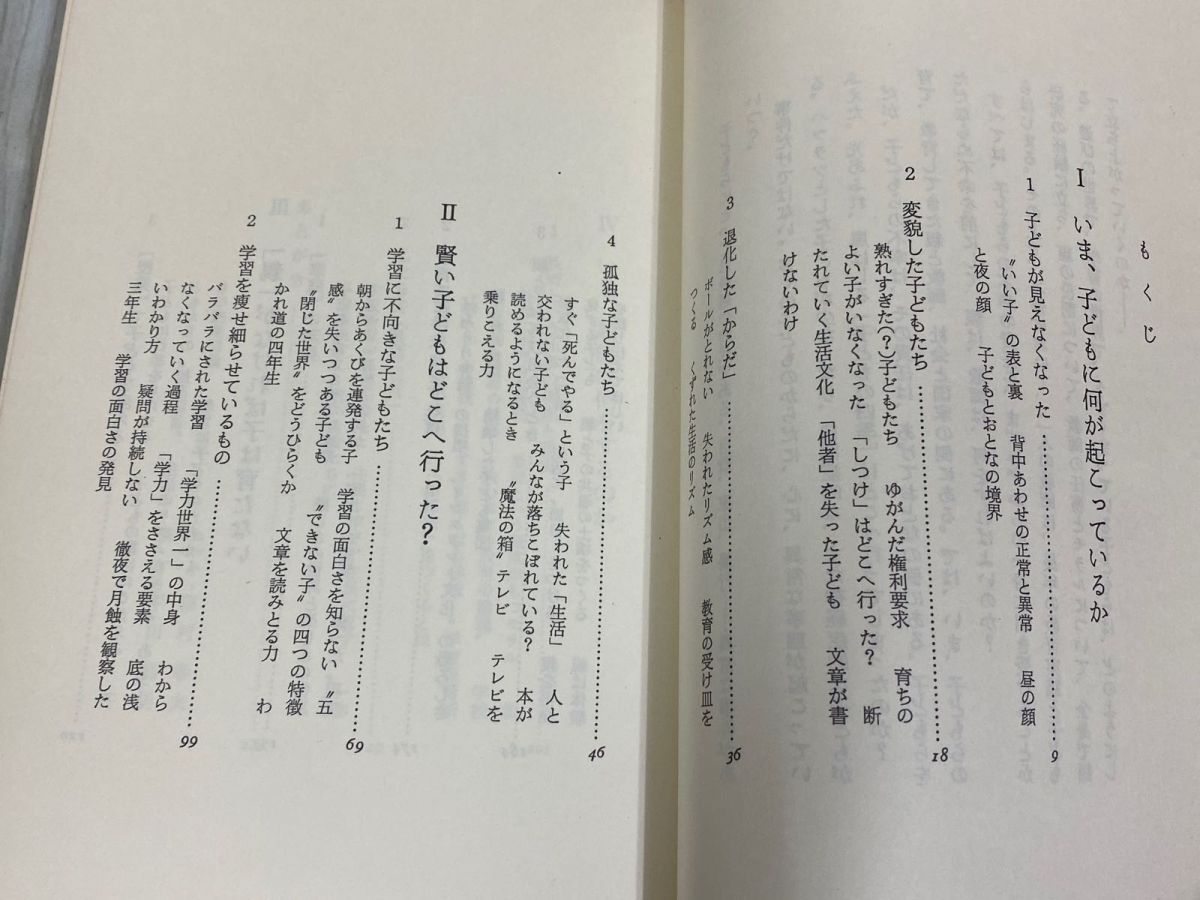 もくじ
Ⅰ いま、子どもに何が起こっているか
1 子どもが見えなくなった……………9
〝いい子〟の表と裏 背中あわせの正常と異常 昼の顔
と夜の顔 子どもとおとなの境界
2 変貌した子どもたち……………18
熟れすぎた(?)子どもたち ゆがんだ権利要求 育ちの
よい子がいなくなった 「しつけ」はどこへ行った? 断
たれていく生活文化 「他者」を失った子ども 文章が書
けないわけ
3 退化した「からだ」……………36
ボールがとれない 失われたリズム感 教育の受け皿を
つくる くずれた生活のリズム
4 孤独な子どもたち……………46
すぐ「死んでやる」という子 失われた「生活」 人と
交われない子ども みんなが落ちこぼれている? 本が
読めるようになるとき 〝魔法の箱〟テレビ テレビを
乗りこえる力
Ⅱ 賢い子どもはどこへ行った?
1 学習に不向きな子どもたち……………69
朝からあくびを連発する子 学習の面白さを知らない 〝五
感〟を失いつつある子ども 〝できない子〟の四つの特徴
〝閉じた世界〟をどうひらくか 文章を読みとる力 わ
かれ道の四年生
2 学習を痩せ細らせているもの……………99
バラバラにされた学習 「学力世界一」の中身 わから
なくなっていく過程 「学力」をささえる要素 底の浅
いわかり方 疑問が持続しない 徹夜で月蝕を観察した
三年生 学習の面白さの発見